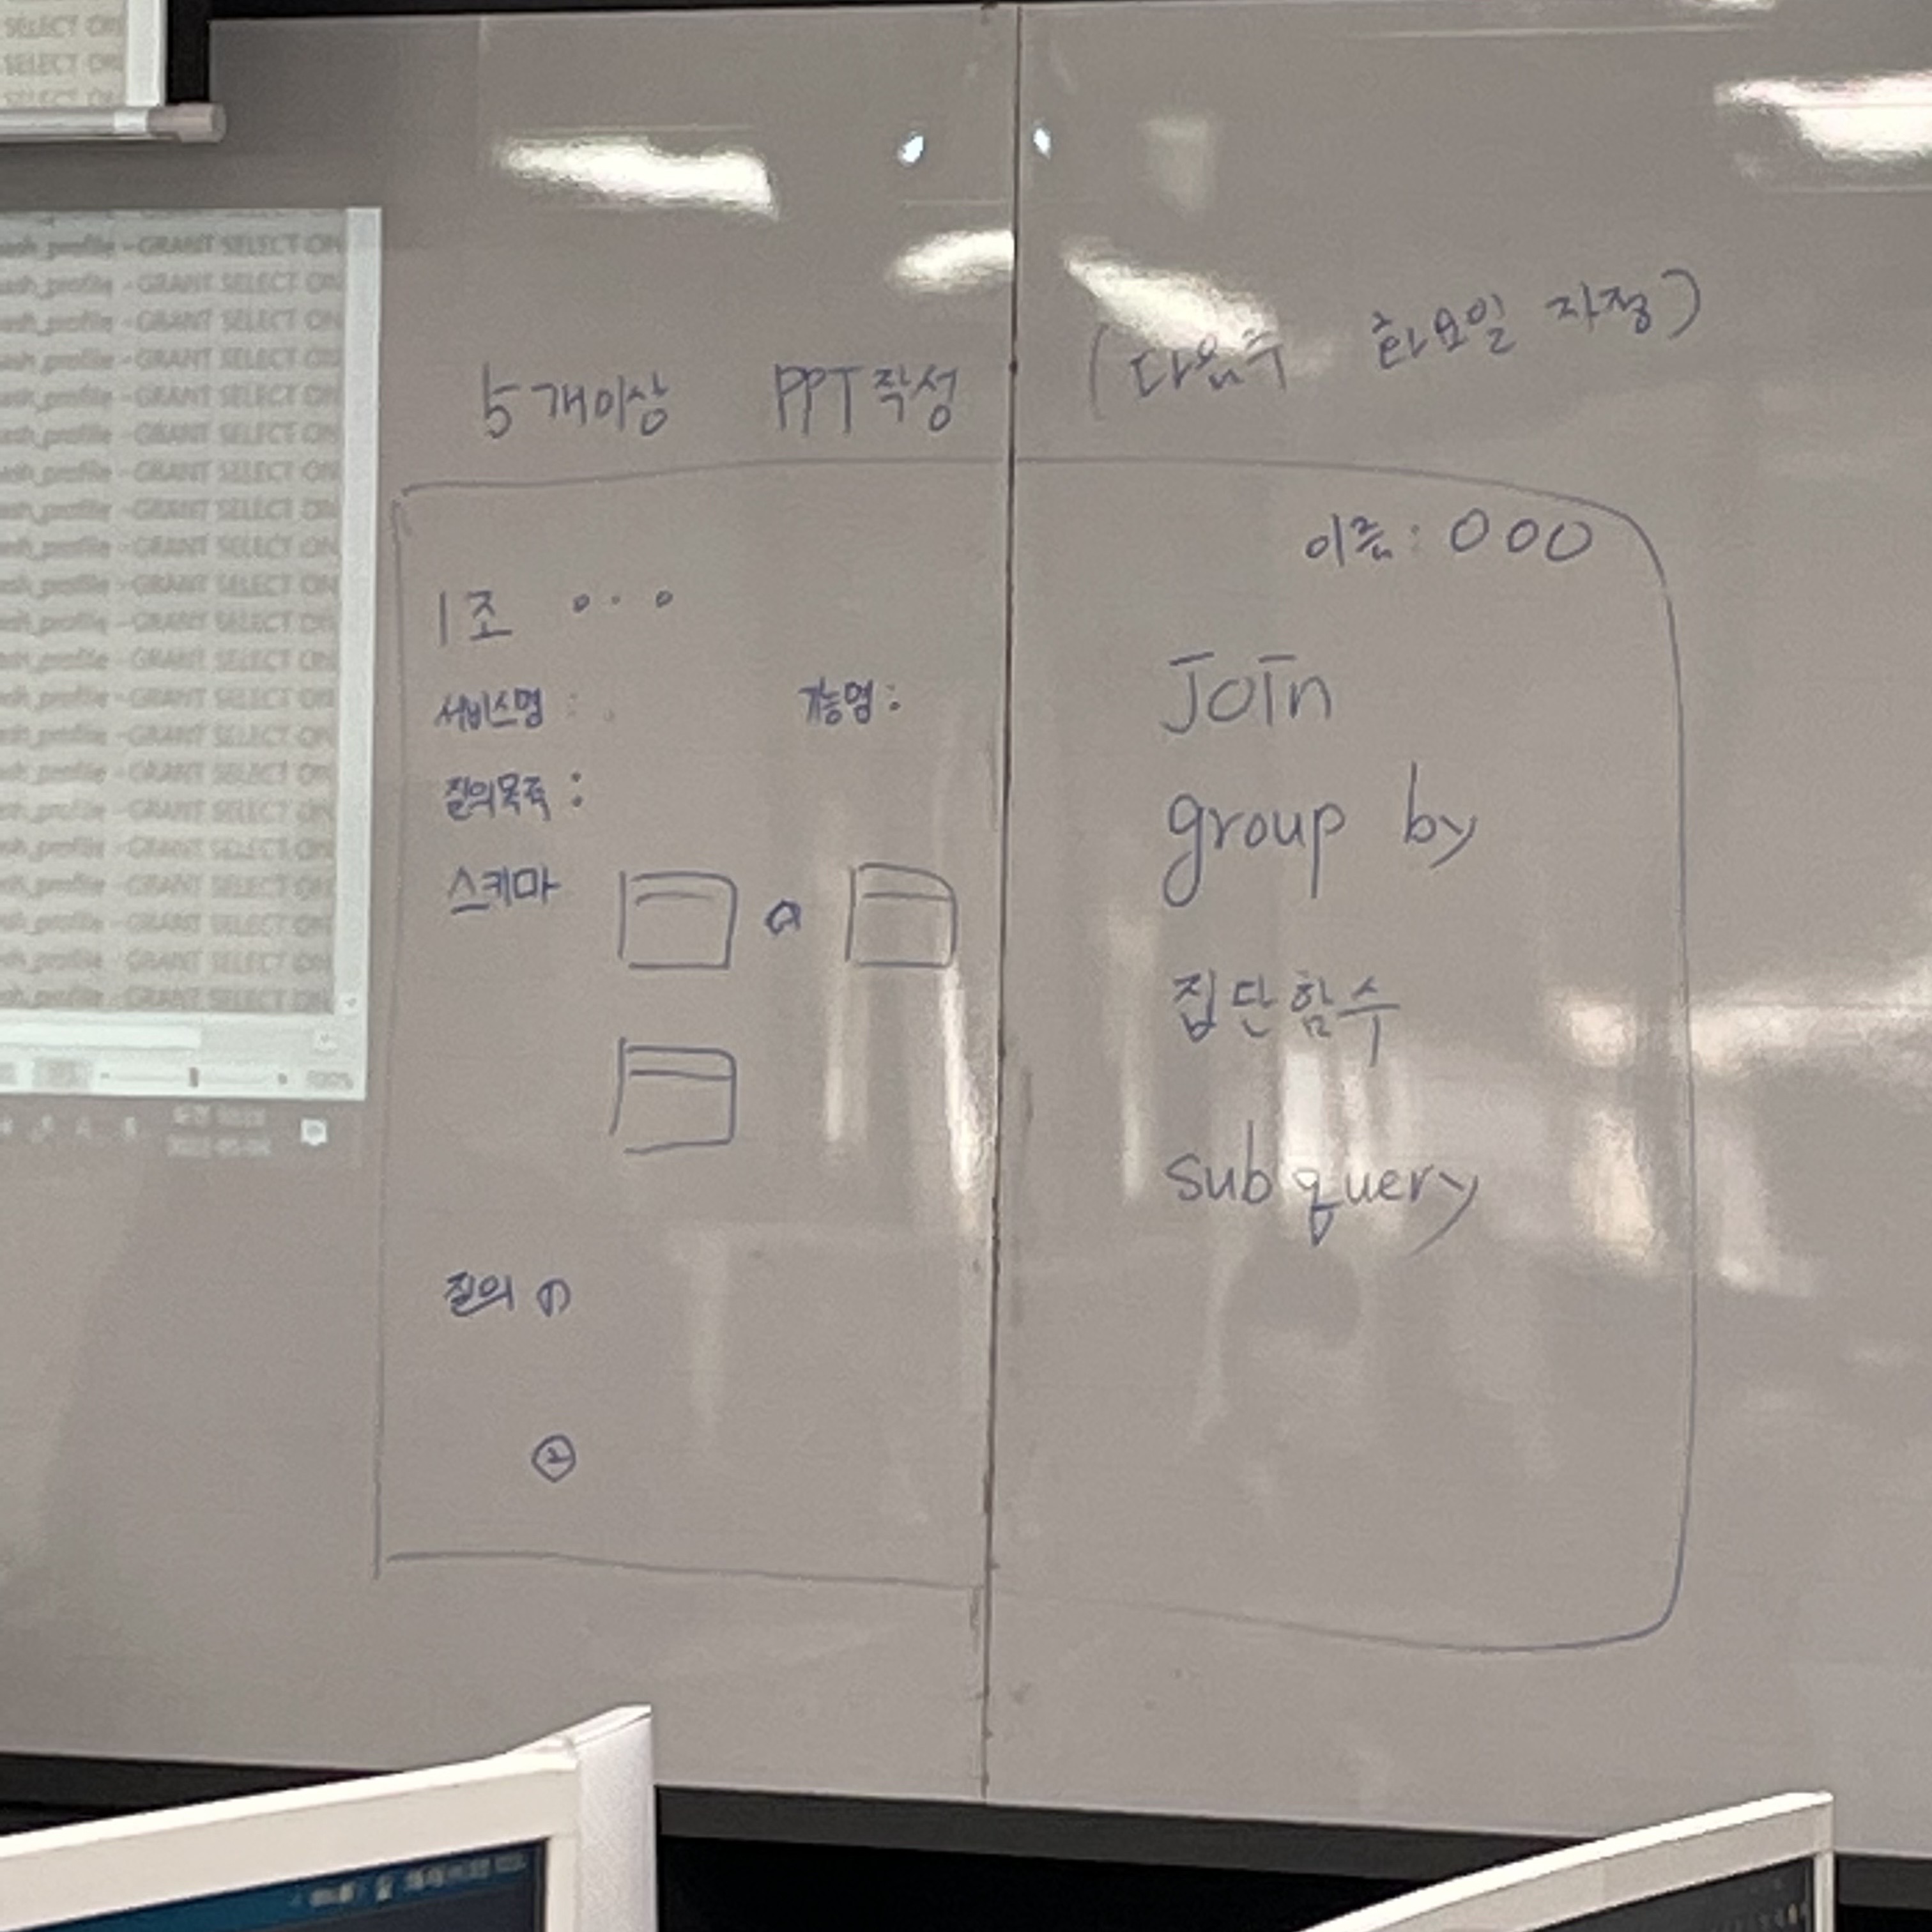 SELECT ON
SELECT ON
SELECT ON
ash_profile - GRANT SELECT ON
ash_profile - GRANT SELECT ON
ash_profile - GRANT SELECT ON
ash_profile - GRANT SELECT ON
ash_profile - GRANT SELECT ON
ash_profile - GRANT SELECT ON
ash_profile - GRANT SELECT ON
ash_profile - GRANT SELECT ON
ash_profile - GRANT SELECT ON
ash_profile - GRANT SELECT ON
ash_profile - GRANT SELECT ON
ash_profile - GRANT SELECT ON
ash_profile - GRANT SELECT ON
ash_profile - GRANT SELECT ON
ash_profile - GRANT SELECT ON
ash_profile - GRANT SELECT ON
ash_profile - GRANT SELECT ON
ash_profile - GRANT SELECT ON
ash_profile - GRANT SELECT ON
ash_profile - GRANT SELECT ON
ash_profile - GRANT SELECT ON
5개이상 PPT작성 (다음주 화요일 자정)
이름 : OOO
1조 ...
서비스명 : 기능명 :
질의목적 :
스키마
질의 ①
②
Join
group by
집단함수
sub query